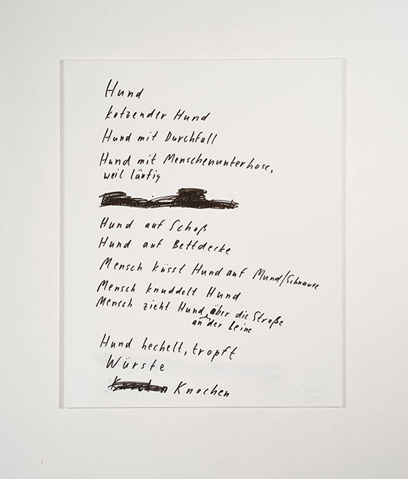 Hund
kotzender Hund
Hund mit Durchfall
Hund mit Menschenunterhose,
weil läufig
Hund auf Schoß
Hund auf Bettdecke
Mensch küsst Hund auf Mund/Schnauze
Mensch knuddelt Hund
Mensch zieht Hund über die Straße
an der Leine
Hund hechelt, tropft
Würste
Knochen